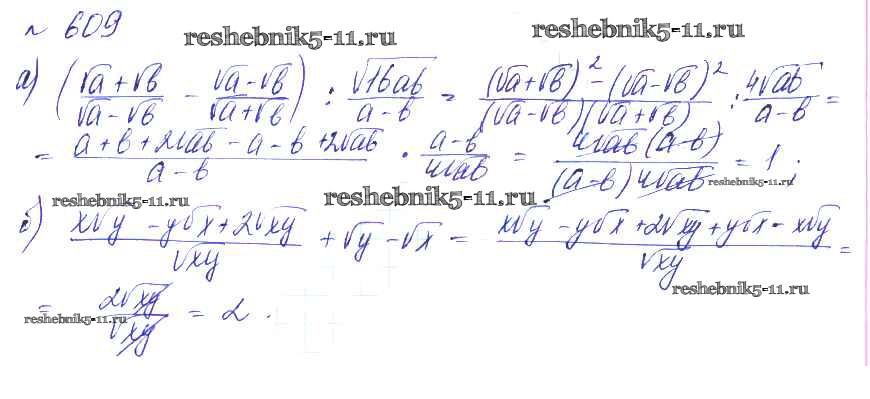 № 609 reshebnik5-11.ru reshebnik5-11.ru
а) ((√a+√b)/(√a-√b) - (√a-√b)/(√a+√b)) : √16ab/(a-b) = ((√a+√b)² - (√a-√b)²)/((√a-√b)(√a+√b)) : 4√ab/(a-b) =
= (a+b+2√ab-a-b+2√ab)/(a-b) · (a-b)/(4√ab) = (4√ab(a-b))/((a-b)4√ab) = 1;
reshebnik5-11.ru reshebnik5-11.ru reshebnik5-11.ru
б) (x√y - y√x + 2√xy)/√xy + √y - √x = (x√y - y√x + 2√xy + y√x - x√y)/√xy =
reshebnik5-11.ru
= 2√xy/√xy = 2.
reshebnik5-11.ru